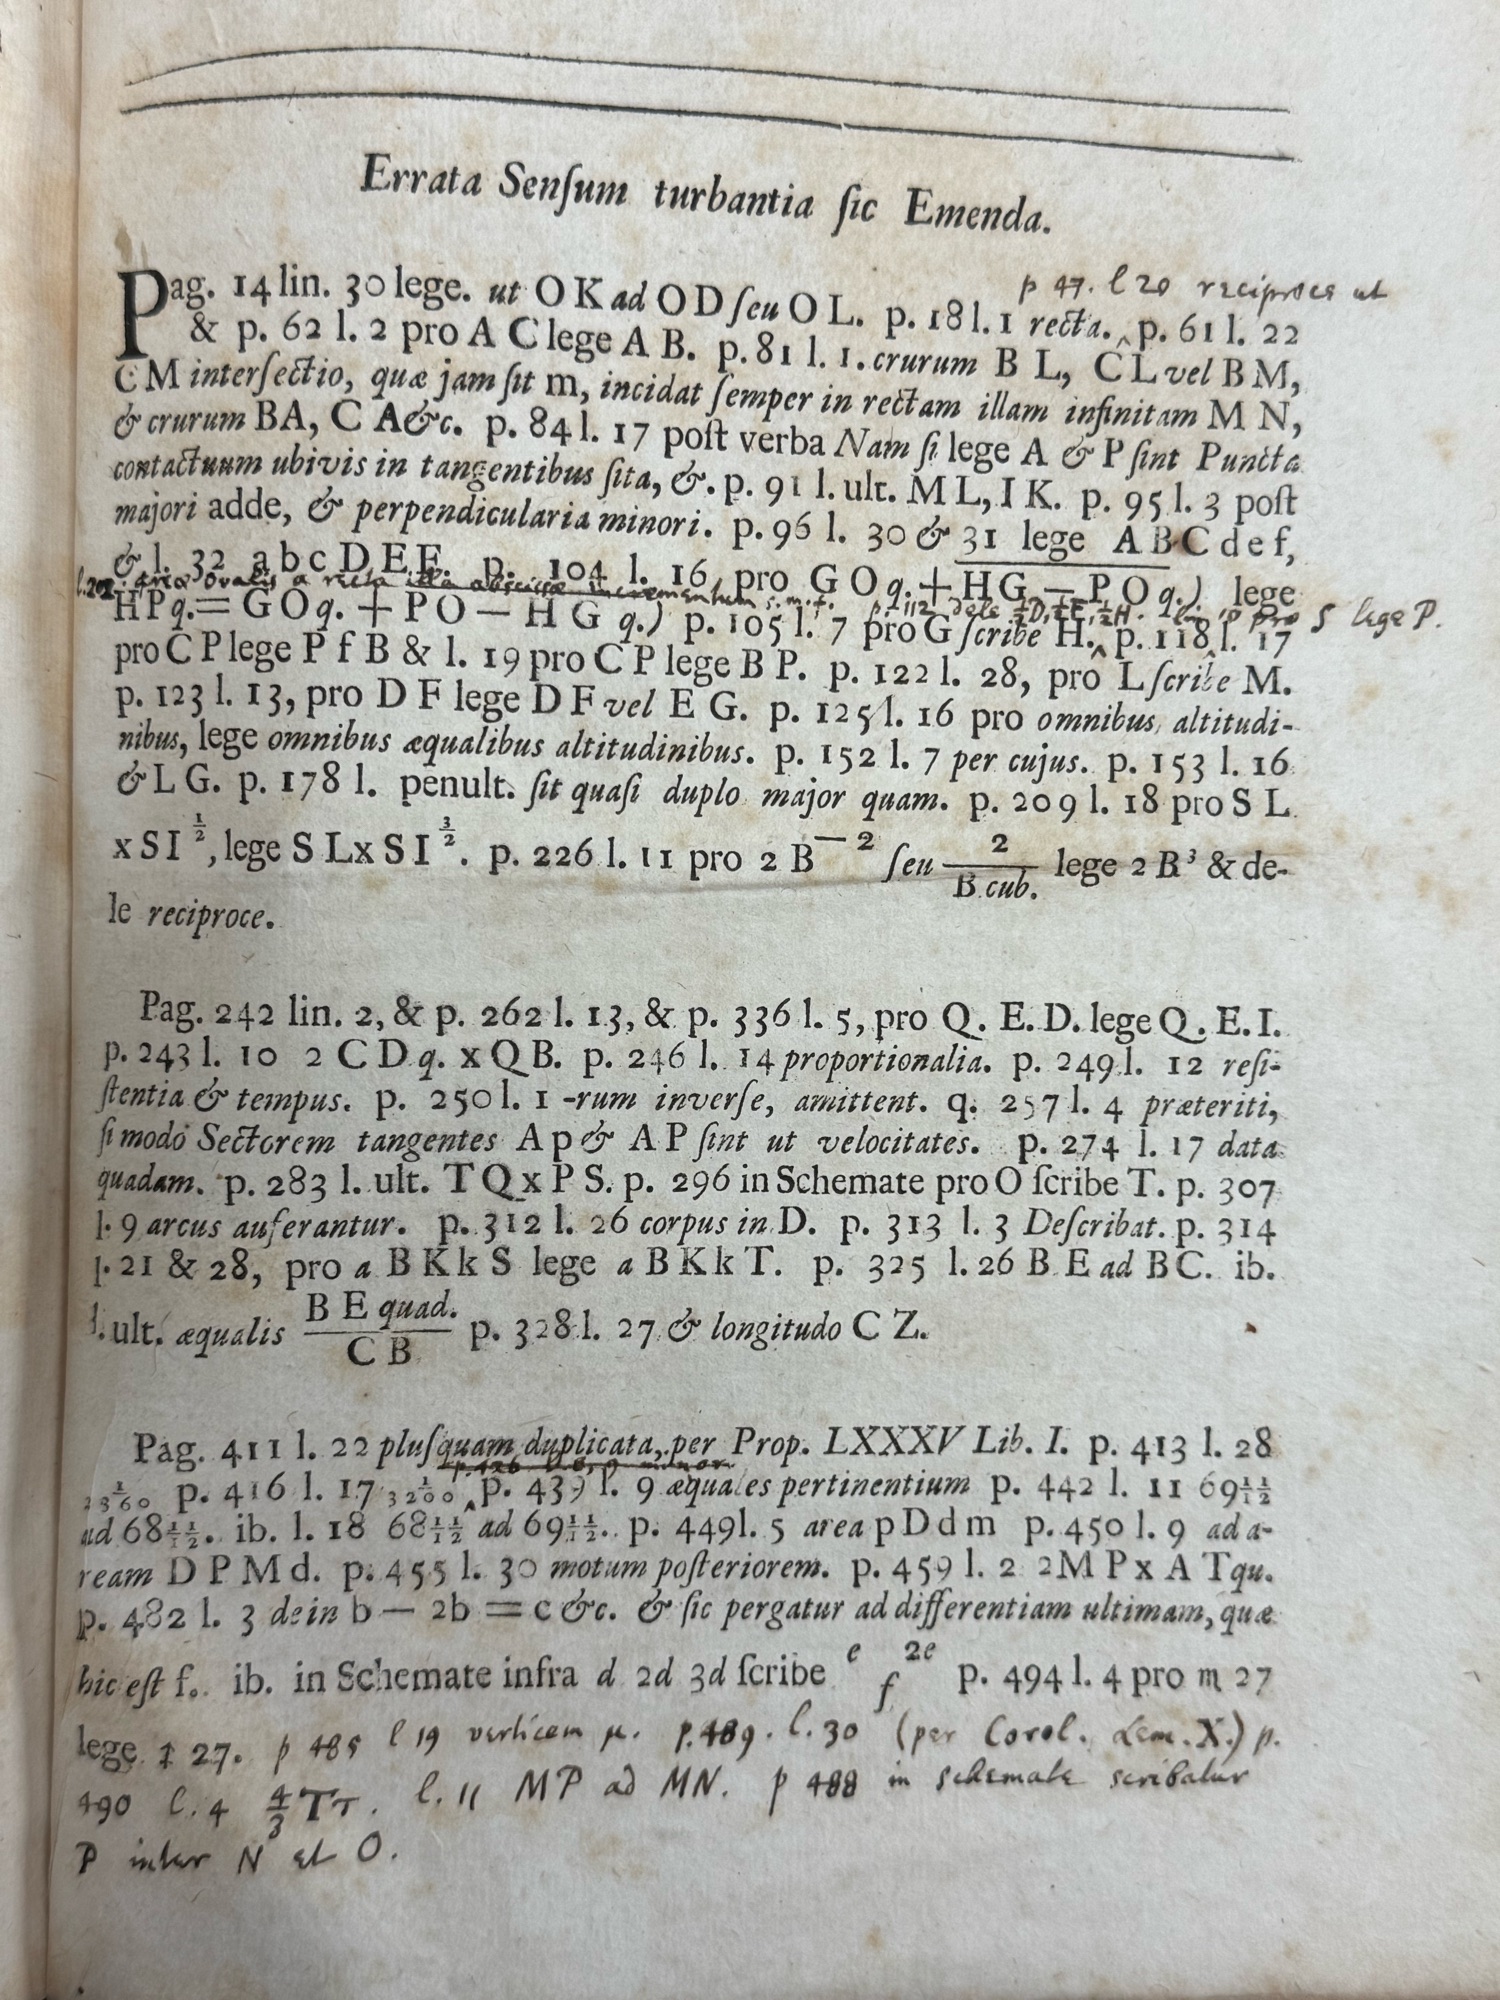 Errata Senſum turbantia ſic Emenda.
p 47. l 20 reciproce ut
Pag. 14 lin. 30 lege. ut O K ad O D ſeu O L. p. 18 l. 1 recta. ‸ p. 61 l. 22
& p. 62 l. 2 pro A C lege A B. p. 81 l. 1. crurum B L, C L vel B M,
C M interſectio, quæ jam ſit m, incidat ſemper in rectam illam infinitam M N,
& crurum BA, C A &c. p. 84 l. 17 poſt verba Nam ſi lege A & P ſint Puncta
contactuum ubivis in tangentibus ſita, &. p. 91 l. ult. M L, I K. p. 95 l. 3 poſt
majori adde, & perpendicularia minori. p. 96 l. 30 & 31 lege A B C d e f,
& l. 32 a b c D E F. p. 104 l. 16 pro G O q. + H G — P O q.) lege
area Ovalis a recta illa abscissæ incrementum s.m.t. p. 112 dele ½D, ½E, ½H. pro S lege P.
H P q. = G O q. + P O — H G q.) p. 105 l. 7 pro G ſcribe H. ‸ p. 118 l. 17
pro C P lege P f B & l. 19 pro C P lege B P. p. 122 l. 28, pro L ſcribe M.
p. 123 l. 13, pro D F lege D F vel E G. p. 125 l. 16 pro omnibus altitudi-
nibus, lege omnibus æqualibus altitudinibus. p. 152 l. 7 per cujus. p. 153 l. 16
& L G. p. 178 l. penult. ſit quaſi duplo major quam. p. 209 l. 18 pro S L
x S I ½, lege S L x S I 3/2. p. 226 l. 11 pro 2 B — 2 ſeu 2/B cub. lege 2 B³ & de-
le reciproce.
Pag. 242 lin. 2, & p. 262 l. 13, & p. 336 l. 5, pro Q. E. D. lege Q. E. I.
p. 243 l. 10 2 C D q. x Q B. p. 246 l. 14 proportionalia. p. 249 l. 12 reſi-
ſtentia & tempus. p. 250 l. 1 -rum inverſe, amittent. q. 257 l. 4 præteriti,
ſi modò Sectorem tangentes A p & A P ſint ut velocitates. p. 274 l. 17 data
quadam. p. 283 l. ult. T Q x P S. p. 296 in Schemate pro O ſcribe T. p. 307
l. 9 arcus auferantur. p. 312 l. 26 corpus in D. p. 313 l. 3 Deſcribat. p. 314
l. 21 & 28, pro a B K k S lege a B K k T. p. 325 l. 26 B E ad B C. ib.
l. ult. æqualis B E quad./C B p. 328 l. 27 & longitudo C Z.
Pag. 411 l. 22 pluſquam duplicata, per Prop. LXXXV Lib. I. p. 413 l. 28
p. 426 minor
p. 416 l. 17 ‸ p. 439 l. 9 æquales pertinentium p. 442 l. 11 69 11/12
ad 68 11/12. ib. l. 18 68 11/12 ad 69 11/12. p. 449 l. 5 area p D d m p. 450 l. 9 ad a-
ream D P M d. p. 455 l. 30 motum poſteriorem. p. 459 l. 2 2M P x A T qu.
p. 482 l. 3 dein b — 2b = c &c. & ſic pergatur ad differentiam ultimam, quæ
hic eſt f. ib. in Schemate infra d 2d 3d ſcribe e f 2e p. 494 l. 4 pro ♏ 27
lege 27. p 485 l 19 verticem μ. p. 489. l. 30 (per Corol. Lem. X.) p.
490 l. 4 4/3 Tτ. l. 11 MP ad MN. p 488 in schemate scribatur
P inter N et O.